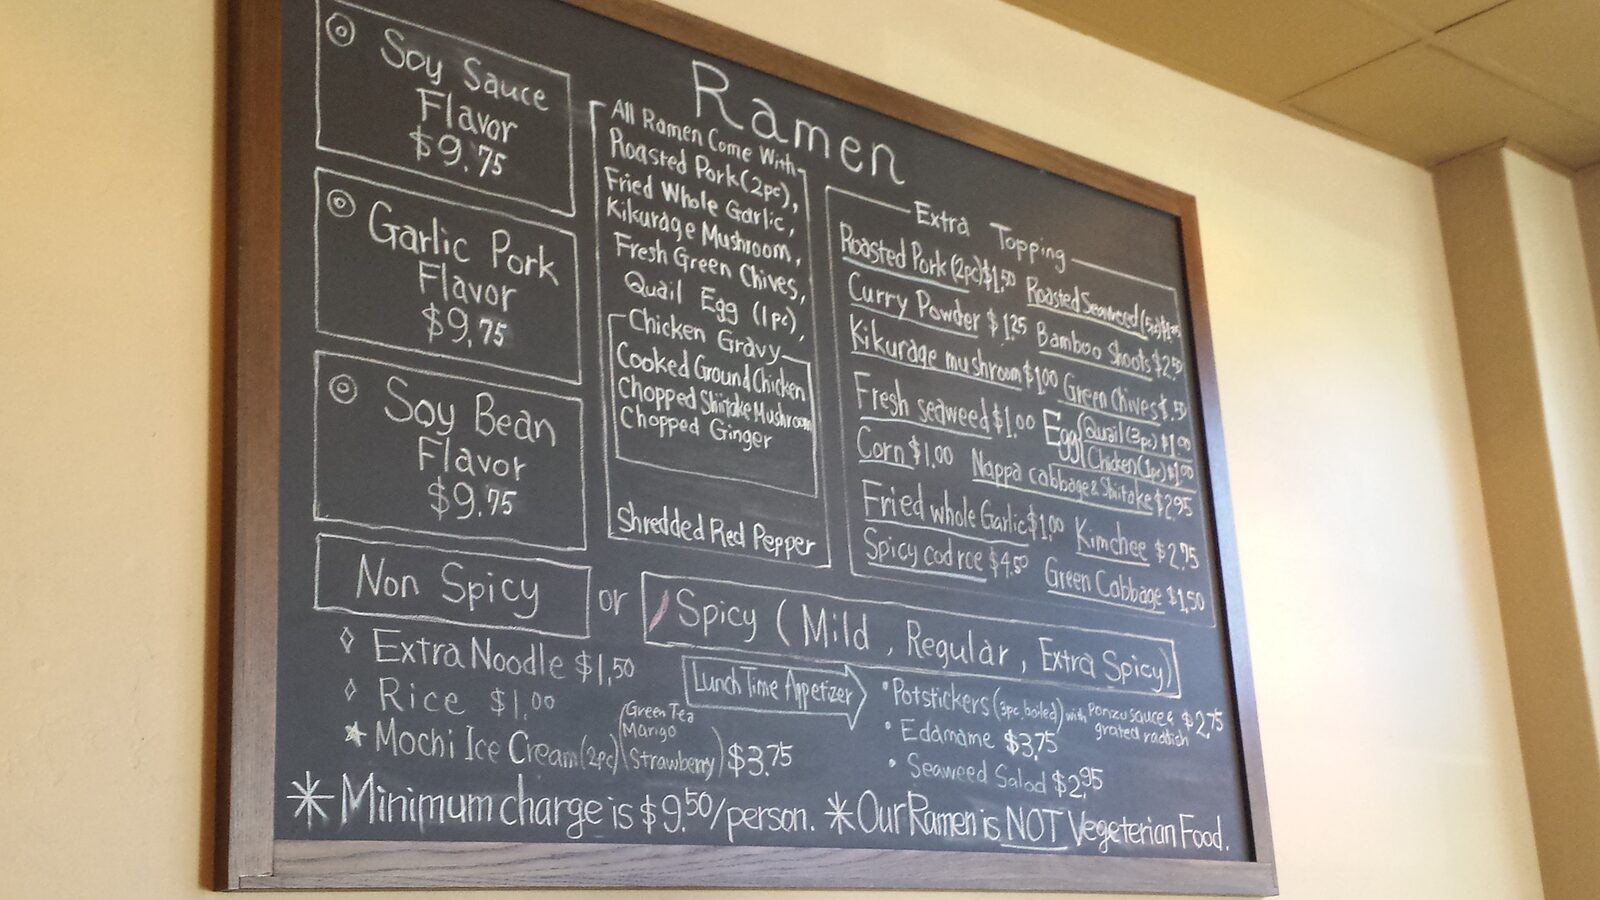 Ramen
Soy Sauce
Flavor
$9.75
Garlic Pork
Flavor
$9.75
Soy Bean
Flavor
$9.75
All Ramen Come With
Roasted Pork (2pc),
Fried Whole Garlic,
Kikurage Mushroom,
Fresh Green Chives,
Quail Egg (1pc),
Chicken Gravy
Cooked Ground Chicken
Chopped Shiitake Mushroom
Chopped Ginger
Shredded Red Pepper
Extra Topping
Roasted Pork (2pc) $1.50 Roasted Seaweed
Curry Powder $1.25 Bamboo Shoots $2.50
Kikurage mushroom $1.00 Green Chives $.50
Fresh seaweed $1.00 Egg Quail (3pc) $1.00
Chicken (1pc) $1.00
Corn $1.00 Nappa cabbage & Shiitake $2.95
Fried whole Garlic $1.00 Kimchee $2.75
Spicy cod roe $4.50 Green Cabbage $1.50
Non Spicy or Spicy (Mild, Regular, Extra Spicy)
Extra Noodle $1.50
Rice $1.00
Mochi Ice Cream (2pc) (Green Tea
Mango
Strawberry) $3.75
Lunch Time Appetizer
• Potstickers (3pc, boiled) with Ponzu sauce & $2.75
grated raddish
• Edamame $3.75
• Seaweed Salad $2.95
* Minimum charge is $9.50/person. * Our Ramen is NOT Vegeterian Food.